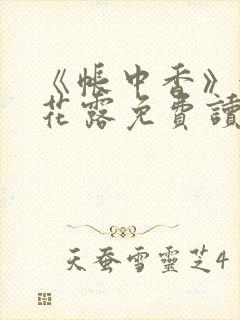 《帳中香》
花露免費讀
天蚕雪靈芝4